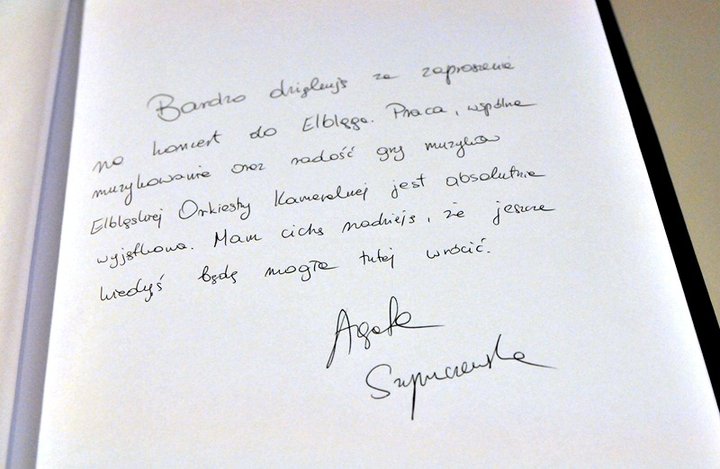 Bardzo dziękuję za zaproszenie
na koncert do Elbląga. Praca, wspólne
muzykowanie oraz radość gry muzyków
Elbląskiej Orkiestry Kameralnej jest absolutnie
wyjątkowa. Mam cichą nadzieję, że jeszcze
kiedyś będę mogła tutaj wrócić.
Agata
Szymczewska